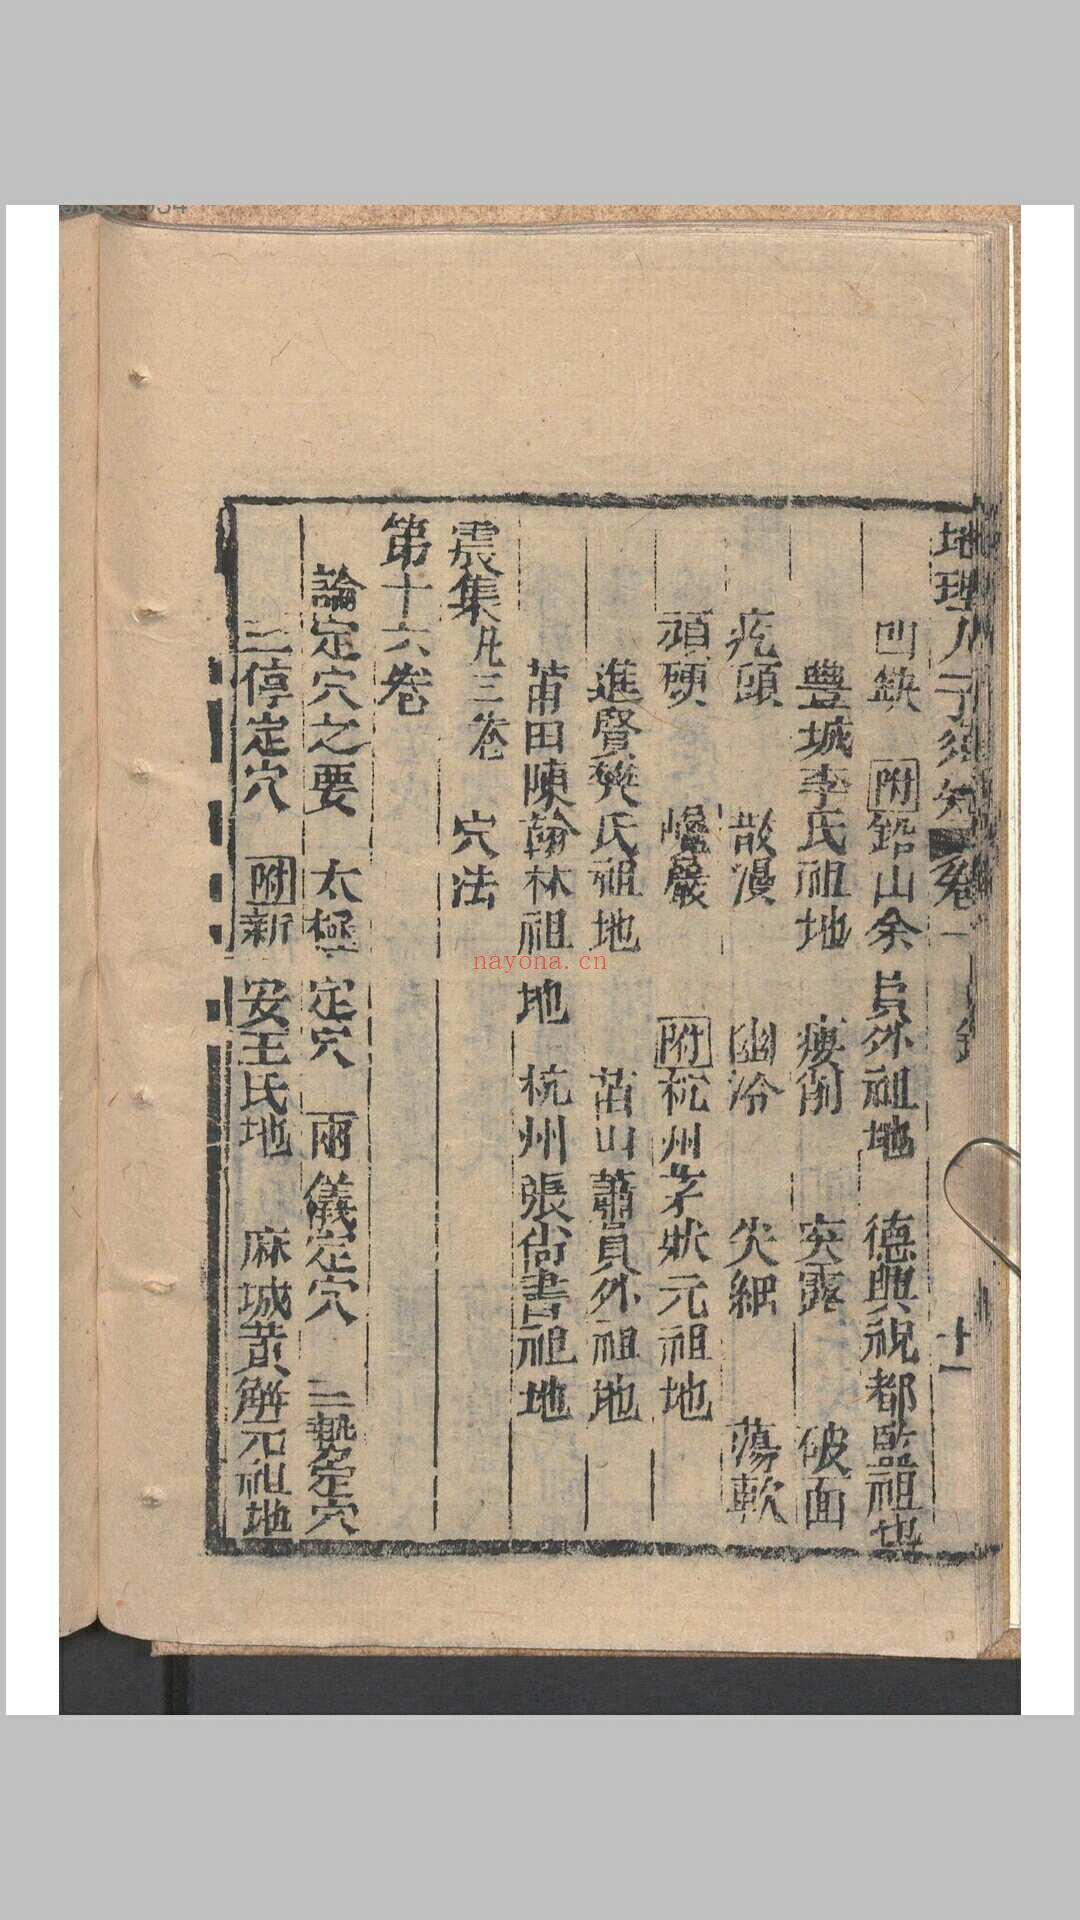 地理人子須知 卷 目錄 十一
凹缺 附鉛山余員外祖地 德興祝都監祖地
豐城李氏祖地 瘦削 突露 破面
疙頭 散漫 幽冷 尖細 蕩軟
頑硬 巉巖 附杭州茅狀元祖地
進賢樊氏祖地 苗山蕭員外祖地
莆田陳翰林祖地 杭州張尙書祖地
震集凡三卷 穴法
第十六卷
論定穴之要 太極定穴 兩儀定穴 三勢定穴
三停定穴 附新安王氏地 麻城黃解元祖地
nayona.cn